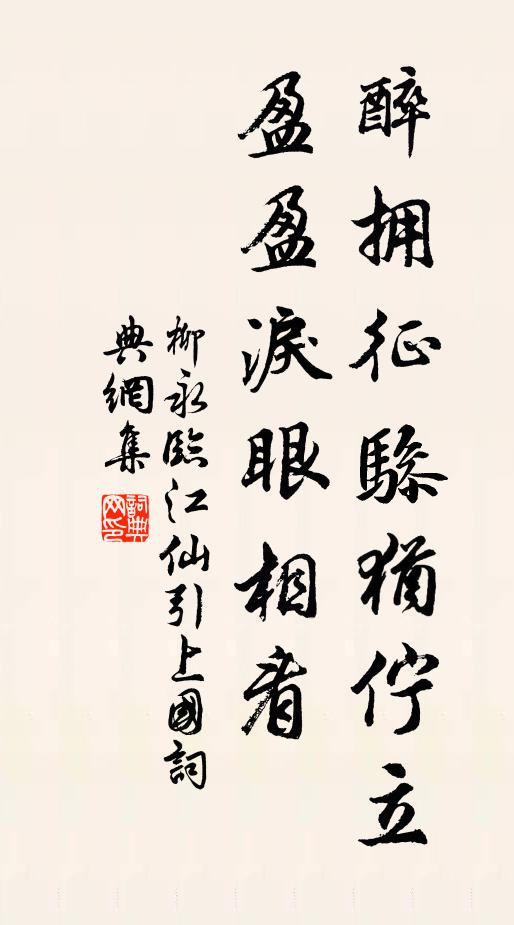 醉拥征驂猶佇立
盈盈淚眼相看
柳永臨江仙引上國詞
典網集
詞典網印